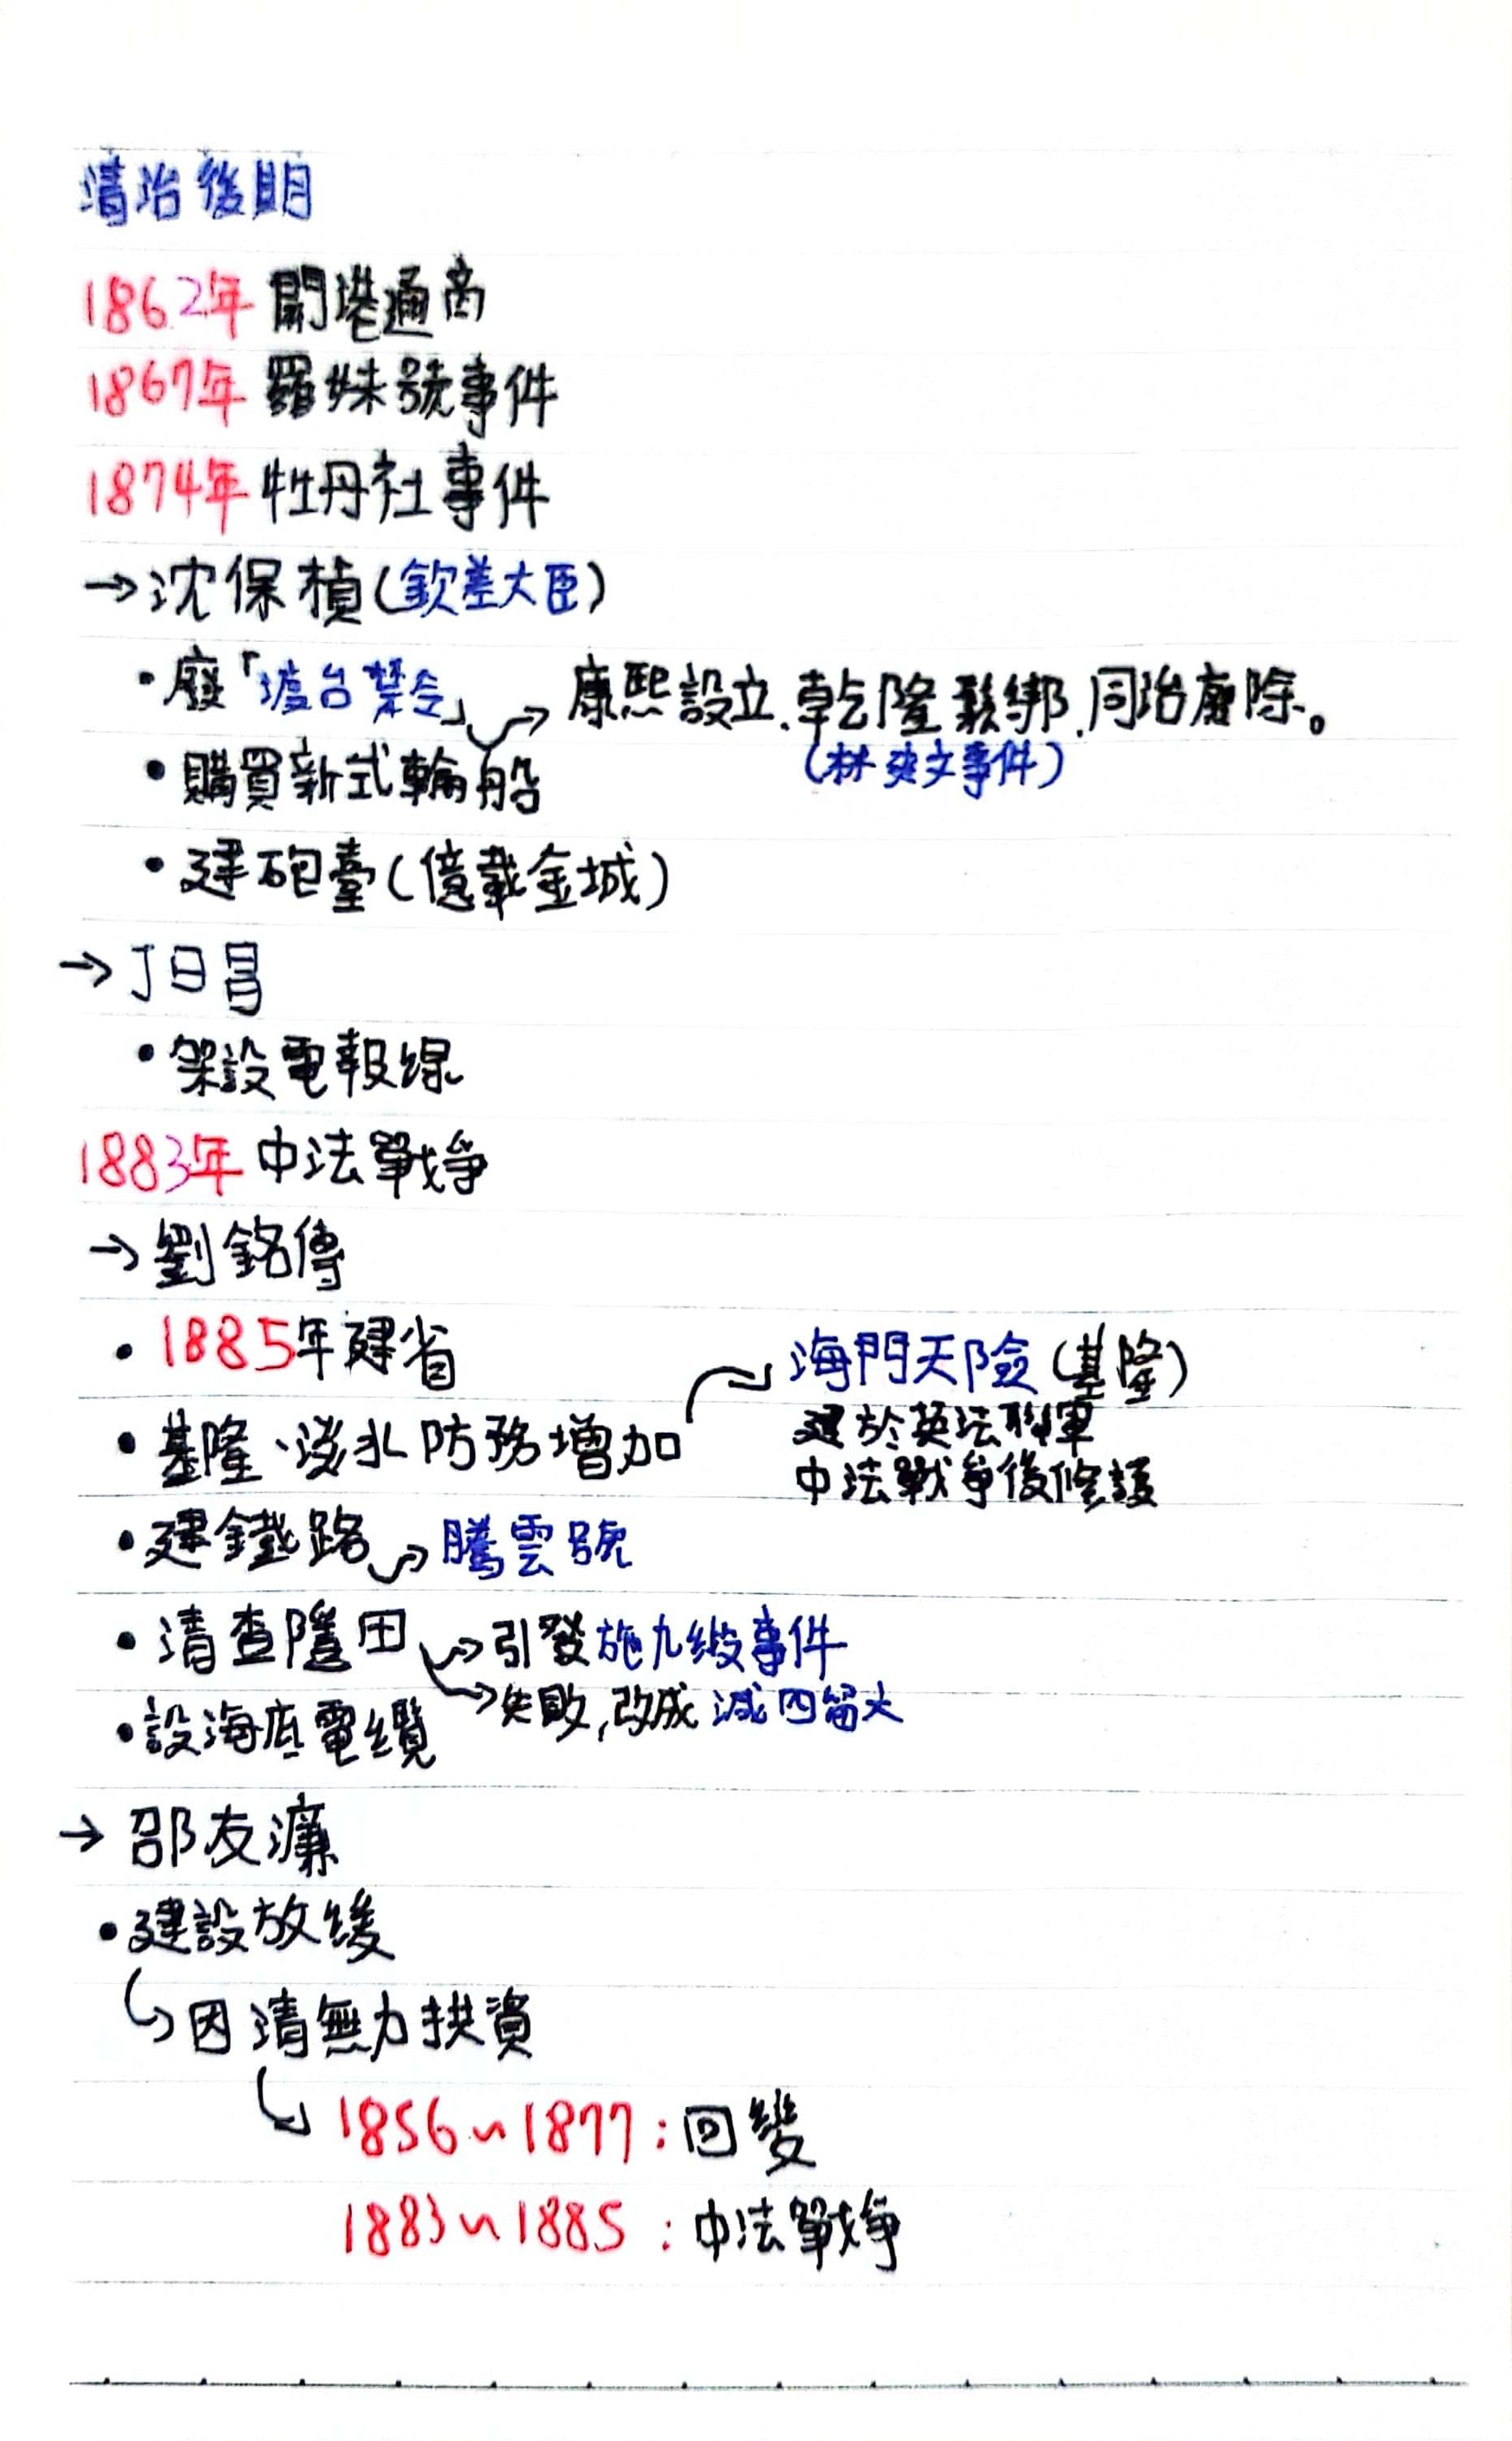 清治後期
1862年 開港通商
1867年 羅妹號事件
1874年 牡丹社事件
→沈保楨(欽差大臣)
・廢「渡台禁令」→康熙設立、乾隆鬆綁、同治廢除。
(林爽文事件)
・購買新式輪船
・建砲臺(億載金城)
→丁日昌
・架設電報線
1883年 中法戰爭
→劉銘傳
・1885年建省
・基隆、淡水防務增加→海門天險(基隆)
建於英法聯軍
中法戰爭後修護
・建鐵路→騰雲號
・清查隱田→引發施九緞事件
→失敗,改成減四留六
・設海底電纜
→邵友濂
・建設放緩
↳因清無力投資
↳1856~1877:回變
1883~1885:中法戰爭